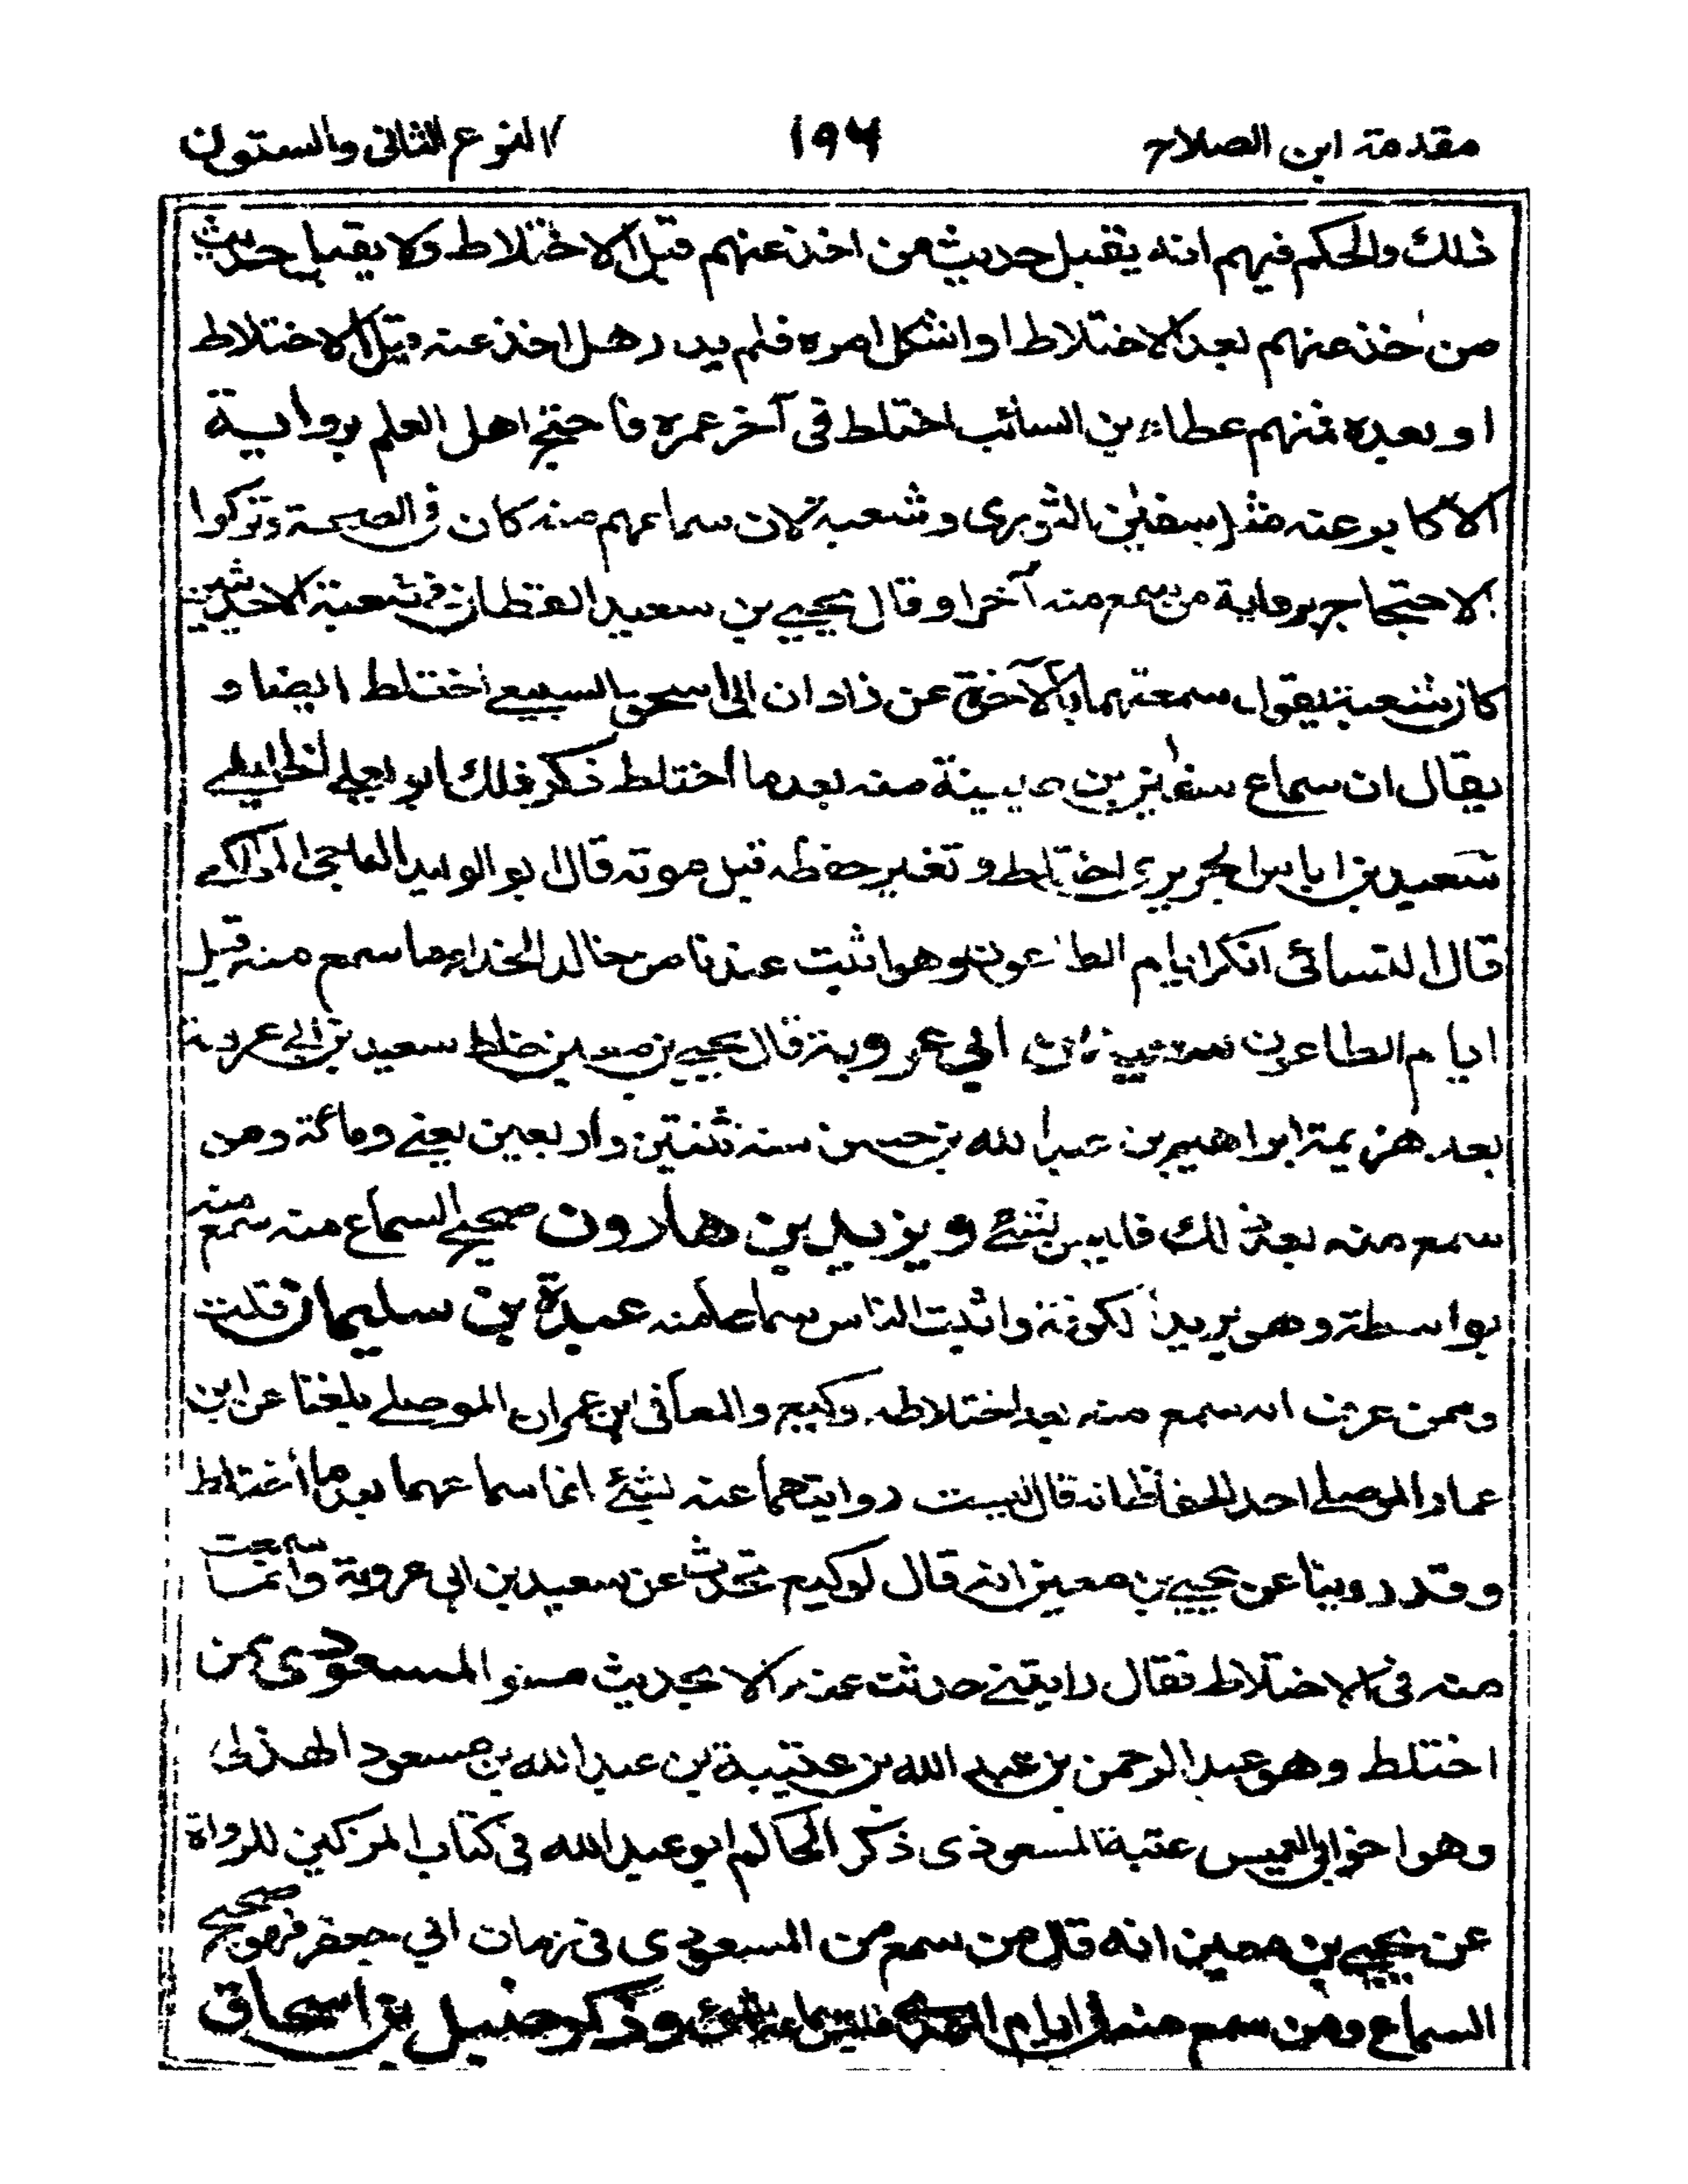 مقدمة ابن الصلاح ۱۹۴ النوع الثانى والستون
ذلك والحكم فيهم انه يقبل حديث من اخذ عنهم قبل الاختلاط ولا يقبل حديث
من اخذ عنهم بعد الاختلاط او اشكل امره فلم يدر هل اخذ عنه قبل الاختلاط
او بعده فمنهم عطاء بن السائب اختلط فى آخر عمره فاحتج اهل العلم برواية
الاكابر عنه مثل سفين الثورى وشعبة لان سماعهم منه كان فى الصحة وتركوا
الاحتجاج برواية من سمع منه آخرا وقال يحيى بن سعيد القطان فى شعبة الا حديثين
كان شعبة يقول سمعتهما بالآخرة عن زاذان ابى اسحق السبيعى اختلط ايضا و
يقال ان سماع سفين بن عيينة منه بعد ما اختلط ذكر ذلك ابو يعلى الخليلى
سعيد بن اياس الجريرى اختلط وتغير حفظه قبل موته قال ابو الوليد الباجى المالكى
قال النسائى انكر ايام الطاعون وهو اثبت عندنا من خالد الحذاء ما سمع منه قبل
ايام الطاعون سعيد بن ابي عروبة قال يحيى بن معين خلط سعيد بن ابى عروبة
بعد هزيمة ابراهيم بن عبد الله بن حسن سنة ثنتين واربعين يعنى ومائة ومن
سمع منه بعد ذلك فليس بشئ ويزيد بن هارون صحيح السماع منه سمع منه
بواسطة وهو يريد الكوفة واثبت الناس سماعا منه عبدة بن سليمان قلت
وممن عرف انه سمع منه بعد اختلاطه وكيع والمعافى بن عمران الموصلى بلغنا عن ابن
عمار الموصلى احد الحفاظ انه قال ليست روايتهما عنه بشئ انما سماعهما بعد ما اختلط
وقد روينا عن يحيى بن معين انه قال لوكيع تحدث عن سعيد بن ابى عروبة وانما سمعت
منه فى الاختلاط فقال رايتنى حدثت عنه الا بحديث مستو المسعودى ممن
اختلط وهو عبد الرحمن بن عبد الله بن عتيبة بن عبد الله بن مسعود الهذلى
وهو اخو ابى العميس عتبة المسعوذى ذكر الحاكم ابو عبد الله فى كتاب المزكين للرواة
عن يحيى بن معين انه قال من سمع من المسعودى فى زمان ابي جعفر فهو صحيح
السماع ومن سمع منه فى ايام المهدى فليس سماعه بشئ وذكر حنبل بن اسحاق